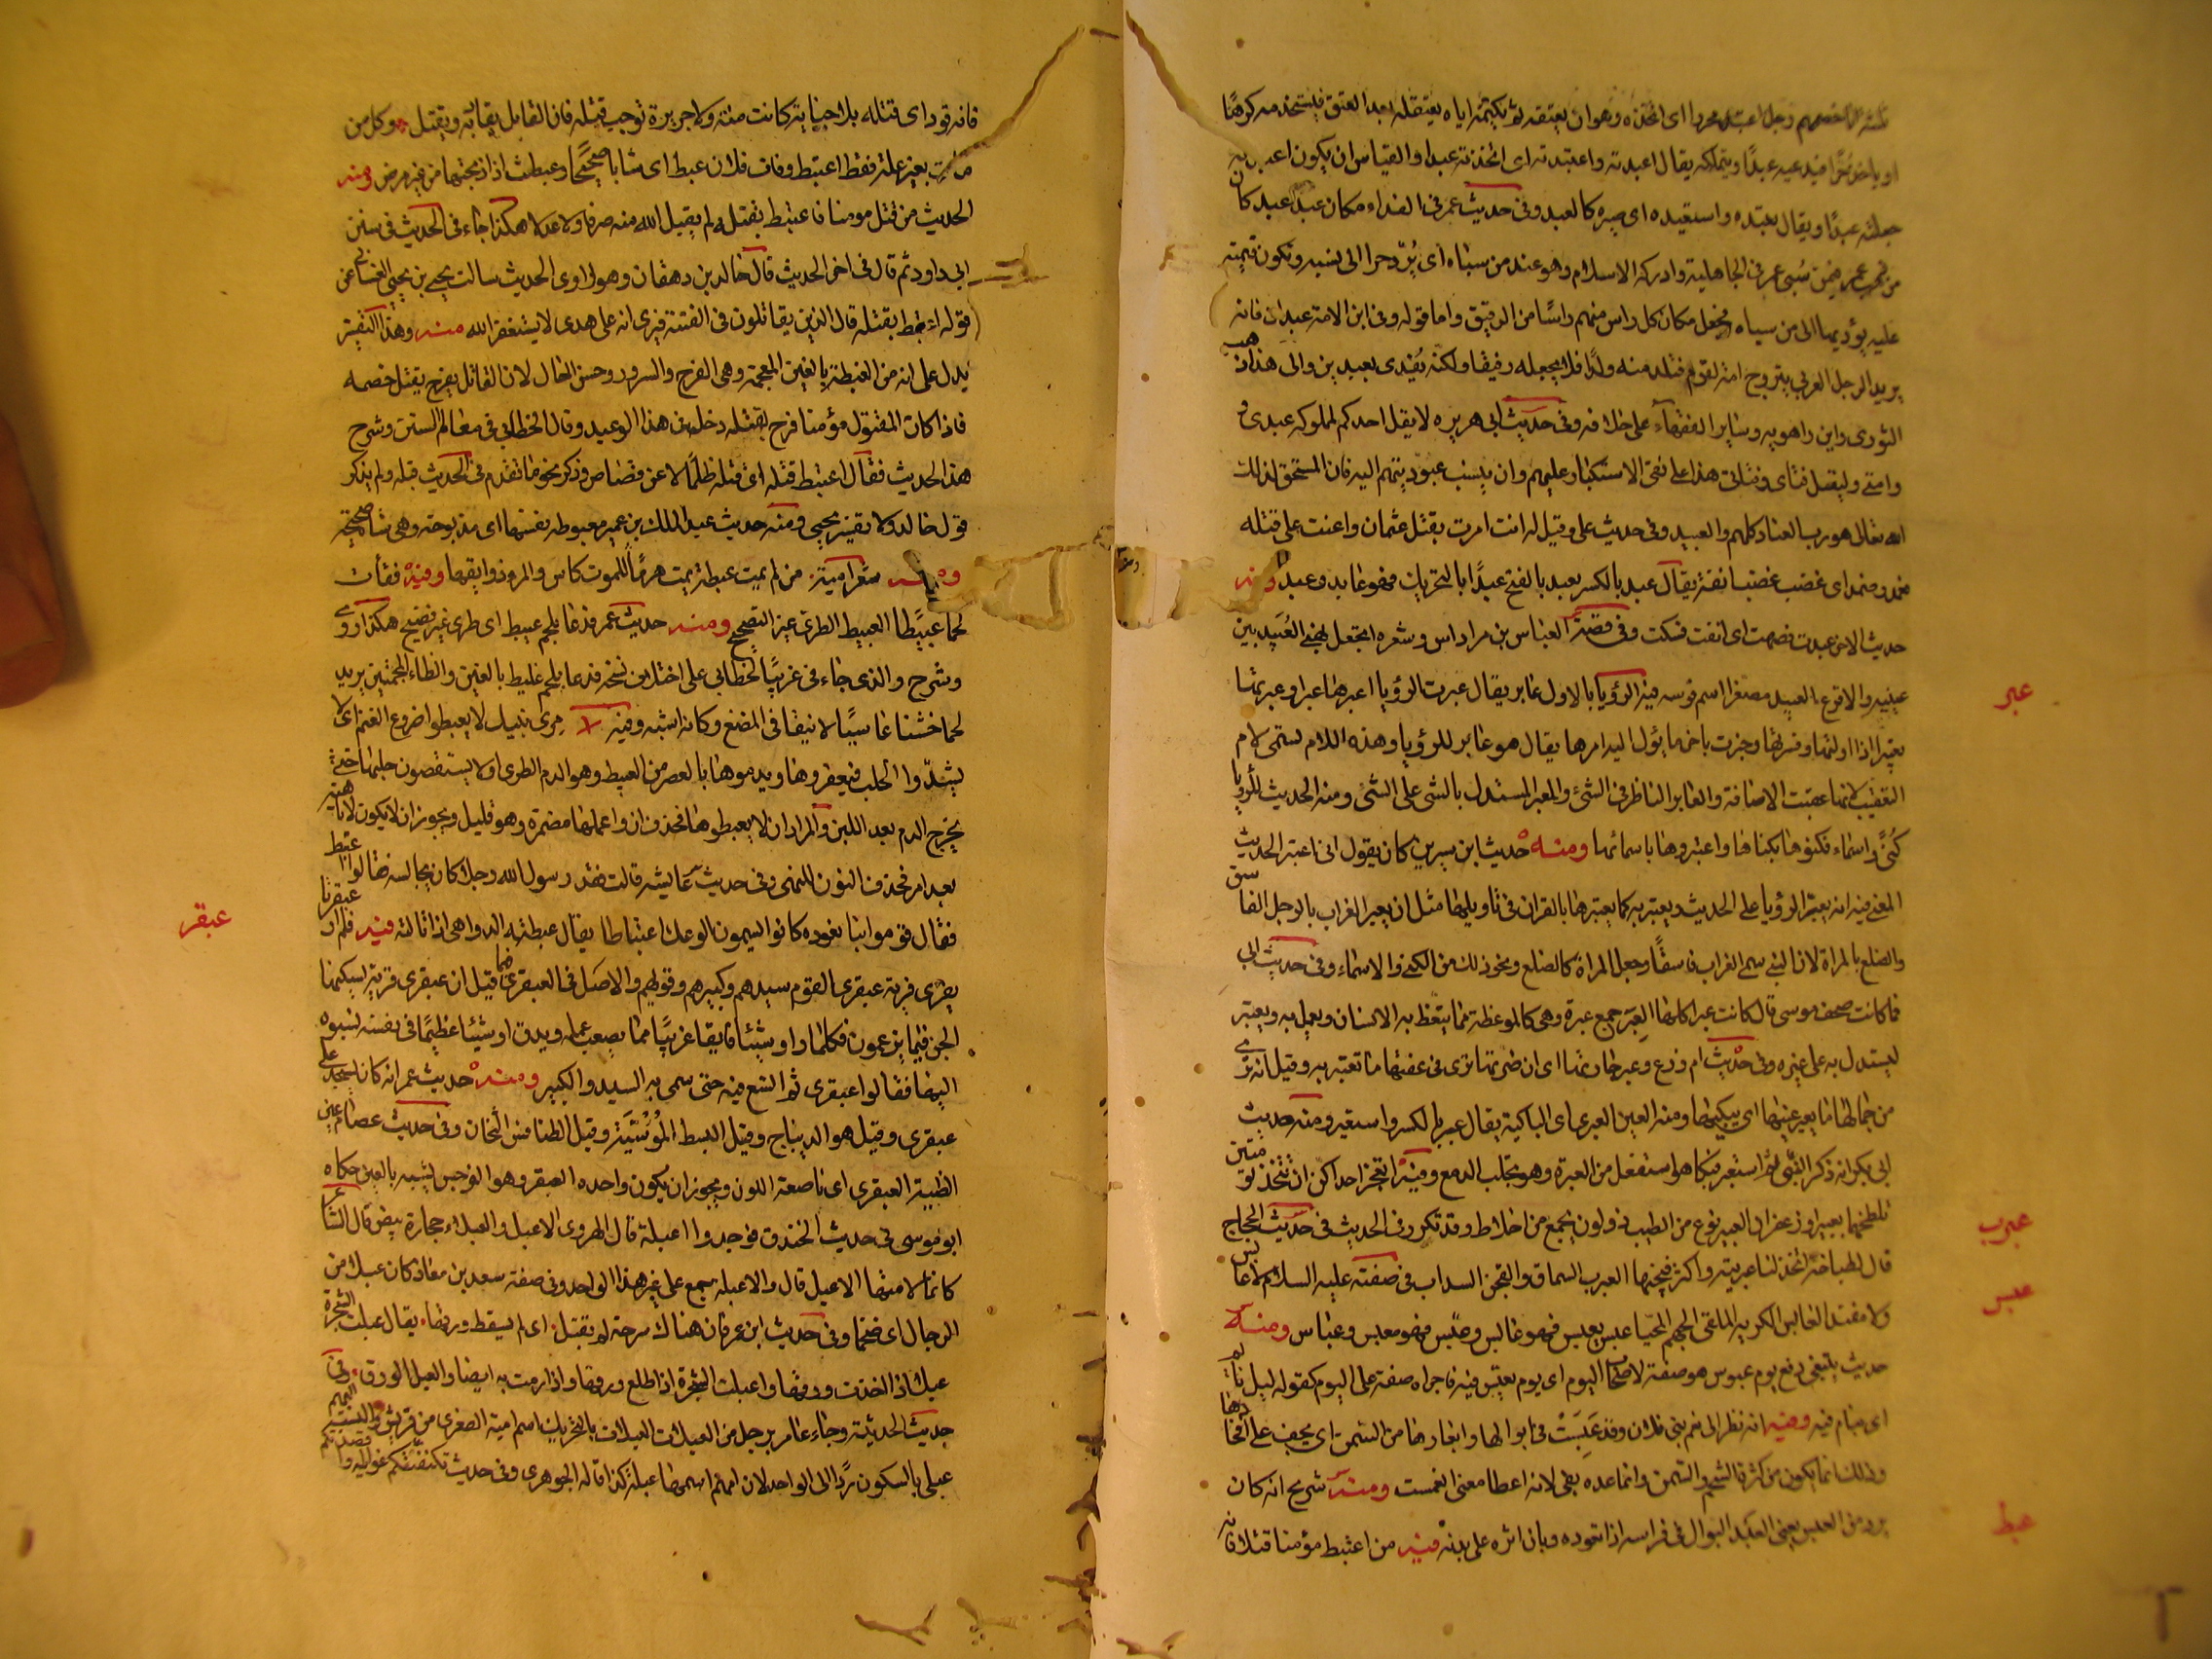 ثلثة انا خصمهم رجل اعتبد محررا اى اتخذه وهو ان يعتقه ثم يكتمه اياه يعتقله بعد العتق فيستخدمه كرها
او ياخذ حرا فيدعيه عبدا ويتملكه يقال اعبدته واعتبدته اى اتخذته عبدا والقياس ان يكون اعبدته
جعلته عبدا ويقال تعبده واستعبده اى صيره كالعبد وفى حديث عمر فى الفداء مكان عبد عبد كان
من مذهب عمر فيمن سبى عرفى الجاهلية وادركه الاسلام وهو عند من سباه اى يرد حرا الى نسبه وتكون قيمته
عليه يؤديها الى من سباه فجعل مكان كل راس منهم راسا من الرقيق واما قوله وفى ابن الامة عبدان فانه
يريد الرجل العربى يتزوج امة لقوم فتلد منه ولدا فلا يجعله رقيقا ولكنه يفدى بعبدين والى هذا ذهب
الثورى وابن راهويه وساير الفقهاء على خلافه وفى حديث ابى هريره لا يقل احدكم لمملوكه عبدى و
وامتى وليقل فتاى وفتاتى هذا على نفى الاستكبار عليهم وان ينسب عبوديتهم اليه فان المستحق لذلك
الله تعالى هو رب العباد كلهم والعبيد وفى حديث على وقيل له انت امرت بقتل عثمان واعنت على قتله
فعبد وضمد اى غضب غضبا نفة يقال عبد بالكسر يعبد بالفتح عبدا بالتحريك فهو عابد وعبد ومنه
حديث الاخر عبدت فصمت اى انفت فسكت وفى قصة العباس بن مرداس وشعره اتجعل نهبى ونهب العبيد بين
عيينه والاقرع العبيد مصغرا اسم فرسه فيه الرؤيا بالاول عابر يقال عبرت الرؤيا اعبرها عبرا وعبرتها
تعبيرا اذا اولتها وفسرتها وخبرت باخرما يؤل اليه امرها يقال هو عابر للرؤيا وهذه اللام تسمى لام
التعقيب لانها عقبت الاضافة والعابر الناظر فى الشئ والمعبر المستدل بالشئ على الشئ ومنه الحديث للرؤيا
كنى واسماء فكنوها بكناها واعتبروها باسمائها ومنه حديث ابن سيرين كان يقول انى اعتبر الحديث
المعنى فيه انه يعبر الرؤيا على الحديث ويعتبر به كما يعتبرها بالقران فى تاويلها مثل ان يعبر الغراب بالرجل الفاسق
والضلع بالمراة لان النبى سمى الغراب فاسقا وجعل المراة كالضلع ونحو ذلك من الكنى والاسماء وفى حديث ابى
فما كانت صحف موسى قال كانت عبرا كلها العبر جمع عبرة وهى كالموعظة مما يتعظ به الانسان ويعمل به ويعتبر
ليستدل به على غيره وفى حديث ام زرع وعبر جارتها اى ان ضرتها ترى فى عفتها ما تعتبر به وقيل انها ترى
من جمالها ما يعبر عينها اى يبكيها ومنه العين العبرى اى الباكية يقال عبر بالكسر واستعبر ومنه حديث
ابى بكر انه ذكر النبى ثم استعبر فبكا هو استفعل من العبرة وهو تحلب الدمع وفيه اتعجز احداكن ان تتخذ تومتين
تلطخهما بعبير او زعفران العبير نوع من الطيب ذو لون يجمع من اخلاط وقد تكرر فى الحديث فى حديث الحجاج
قال لطباخه اتخذ لنا عبربية واكثر فيجنها العبرب السماق والفيجن السداب فى صفته عليه السلام لا عابس
ولا مفند العابس الكريه الملقى الجهم المحيا عبس يعبس فهو عابس وعبس فهو معبس وعباس ومنه
حديث يبتغى دفع يوم عبوس هو صفة لاصحاب اليوم اى يوم يعبس فيه فاجراه صفة على اليوم كقوله ليل نائم
اى ينام فيه ومنه انه نظر الى نعم بنى فلان وقد عبست فى ابوالها وابعارها من السمن اى يجف على افخاذها
وذلك انما يكون من كثرة الشحم والسمن وانما عداه بفى لانه اعطا معنى انغمست ومنه شريح انه كان
يرد من العبس يعنى العبد البوال فى فراسه اذا تعوده وبان اثره على بدنه فيه من اعتبط مؤمنا قتلا فانه
عبر
عبرب
عبس
عبط
فانه قود اى قتله بلا جناية كانت منه ولا جريرة توجب قتله فان القاتل يقاد به ويقتل وكل من
مات بغير علة فقط اعتبط وفات فلان عبط اى شابا صحيحا وعبطت اذا ذبحتها من غير مرض ومنه
الحديث من قتل مومنا فاعتبط بقتله لم يقبل الله منه صرفا ولا عدلا هكذا جاء فى الحديث فى سنن
ابى داود ثم قال فى اخر الحديث قال خالد بن دهقان وهو راوى الحديث سالت يحيى بن يحيى الغسانى عن
قوله اعتبط بقتله قال الذين يقاتلون فى الفتنة فيرى انه على هدى لا يستغفر الله منه وهذا التفسير
يدل على انه من الغبطة بالغين المعجمة وهى الفرح والسرور وحسن الحال لان القاتل يفرح بقتل خصمه
فاذا كان المقتول مؤمنا فرح بقتله دخل فى هذا الوعيد وقال الخطابى فى معالم السنن وشرح
هذا الحديث فقال اعتبط قتله اى قتله ظلما لا عن قصاص وذكر نحو ما تقدم فى الحديث قبله ولم يذكر
قول خالد ولا تفسير يحيى ومنه حديث عبد الملك بن عمير معبوطة نفسها اى مذبوحة وهى شابة صحيحة
ومنه شعر امية من لم يمت عبطة يمت هرما للموت كاس والمرء ذوايقها وفيه فقأت
لحما عبيطا العبيط الطرى غير النضيج ومنه حديث عمر فدعا بلحم عبيط اى طرى غير نضيج هكذا روى
وشرح والذى جاء فى غريب الخطابى على اختلاف نسخه فدعا بلحم غليظ بالغين والظاء المعجمتين يريد
لحما خشنا عاسيا لا ينقاد فى المضغ وكانه اشبه وفيه مرى بنيك لا يعبطوا ضروع الغنم اى لا
يشددوا الحلب فيعقروها ويدموها بالعصر من العبيط وهو الدم الطرى اولا يستقصون حلبها حتى
يخرج الدم بعد اللبن والمراد ان لا يعبطوها فحذف ان واعملها مضمرة وهو قليل ويجوز ان لا يكون لا ناهية
بعد امر فحذف النون للنهى وفى حديث عايشه قالت فقد رسول الله رجلا كان يجالسه فقالوا اعتبط
فقال قوموا بنا نعوده كانوا يسمون الوعك اعتباطا يقال عبطته الدواهى اذا نالته فيه فلم ار عبقريا
يفرى فريه عبقرى القوم سيدهم وكبيرهم وقويهم والاصل فى العبقرى فيما قيل ان عبقرى قرية يسكنها
الجن فيما يزعمون فكلما راو شيئا فايقا غريبا مما يصعب عمله ويدق او شيئا عظيما فى نفسه نسبوه
اليها فقالوا عبقرى ثم اتسع فيه حتى سمى به السيد والكبير ومنه حديث عمر انه كان يسجد على
عبقرى وقيل هو الديباج وقيل البسط الموشية وقيل الطنافس الثخان وفى حديث عصام عين
الظبية العبقرى اى ناصعة اللون ويجوز ان يكون واحده العبقر وهو النرجس لشبه بالعين حكاه
ابو موسى فى حديث الخندق فوجدوا اعبلة قال الهروى الاعبل والعبلاء حجارة بيض قال الشاعر
كانما لامتها الاعبل قال والاعبلة جمع على غير هذا الواحد وفى صفة سعد بن معاذ كان عبلا من
الرجال اى ضخما وفى حديث ابن عمر فان هناك سرحة لم تقبل اى لم يسقط ورقها يقال عبلت الشجرة
عبلا اذا اخذت ورقها واعبلت الشجرة اذا طلع ورقها واذا رمت به ايضا والعبل الورق وفى
حديث الحديبية وجاء عامر برجل من العبلات العبلات بالتحريك اسم امية الصغرى من قريش والنسب اليهم
عبلى بالسكون ردا الى الواحد لان امهم اسمها عبلة كذا قاله الجوهرى وفى حديث تكنفتكم غوائله واقصدتكم
عبقر